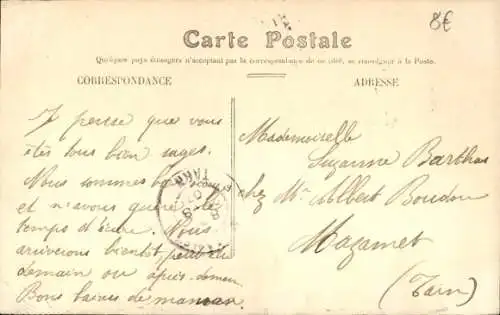 8€
Carte Postale
Quelques pays étrangers n'acceptant pas la correspondance de ce côté, se renseigner à la Poste.
CORRESPONDANCE
ADRESSE
Je pense que vous
êtes tous bien sages.
Nous sommes bien
et n'avons guère le
temps d'écrire. Nous
arriverons bientôt, peut-être
demain ou après-demain
Bons baisers de maman
Mademoiselle
Suzanne Barthas
chez Mr Albert Boudou
Mazamet
(Tarn)
TARN